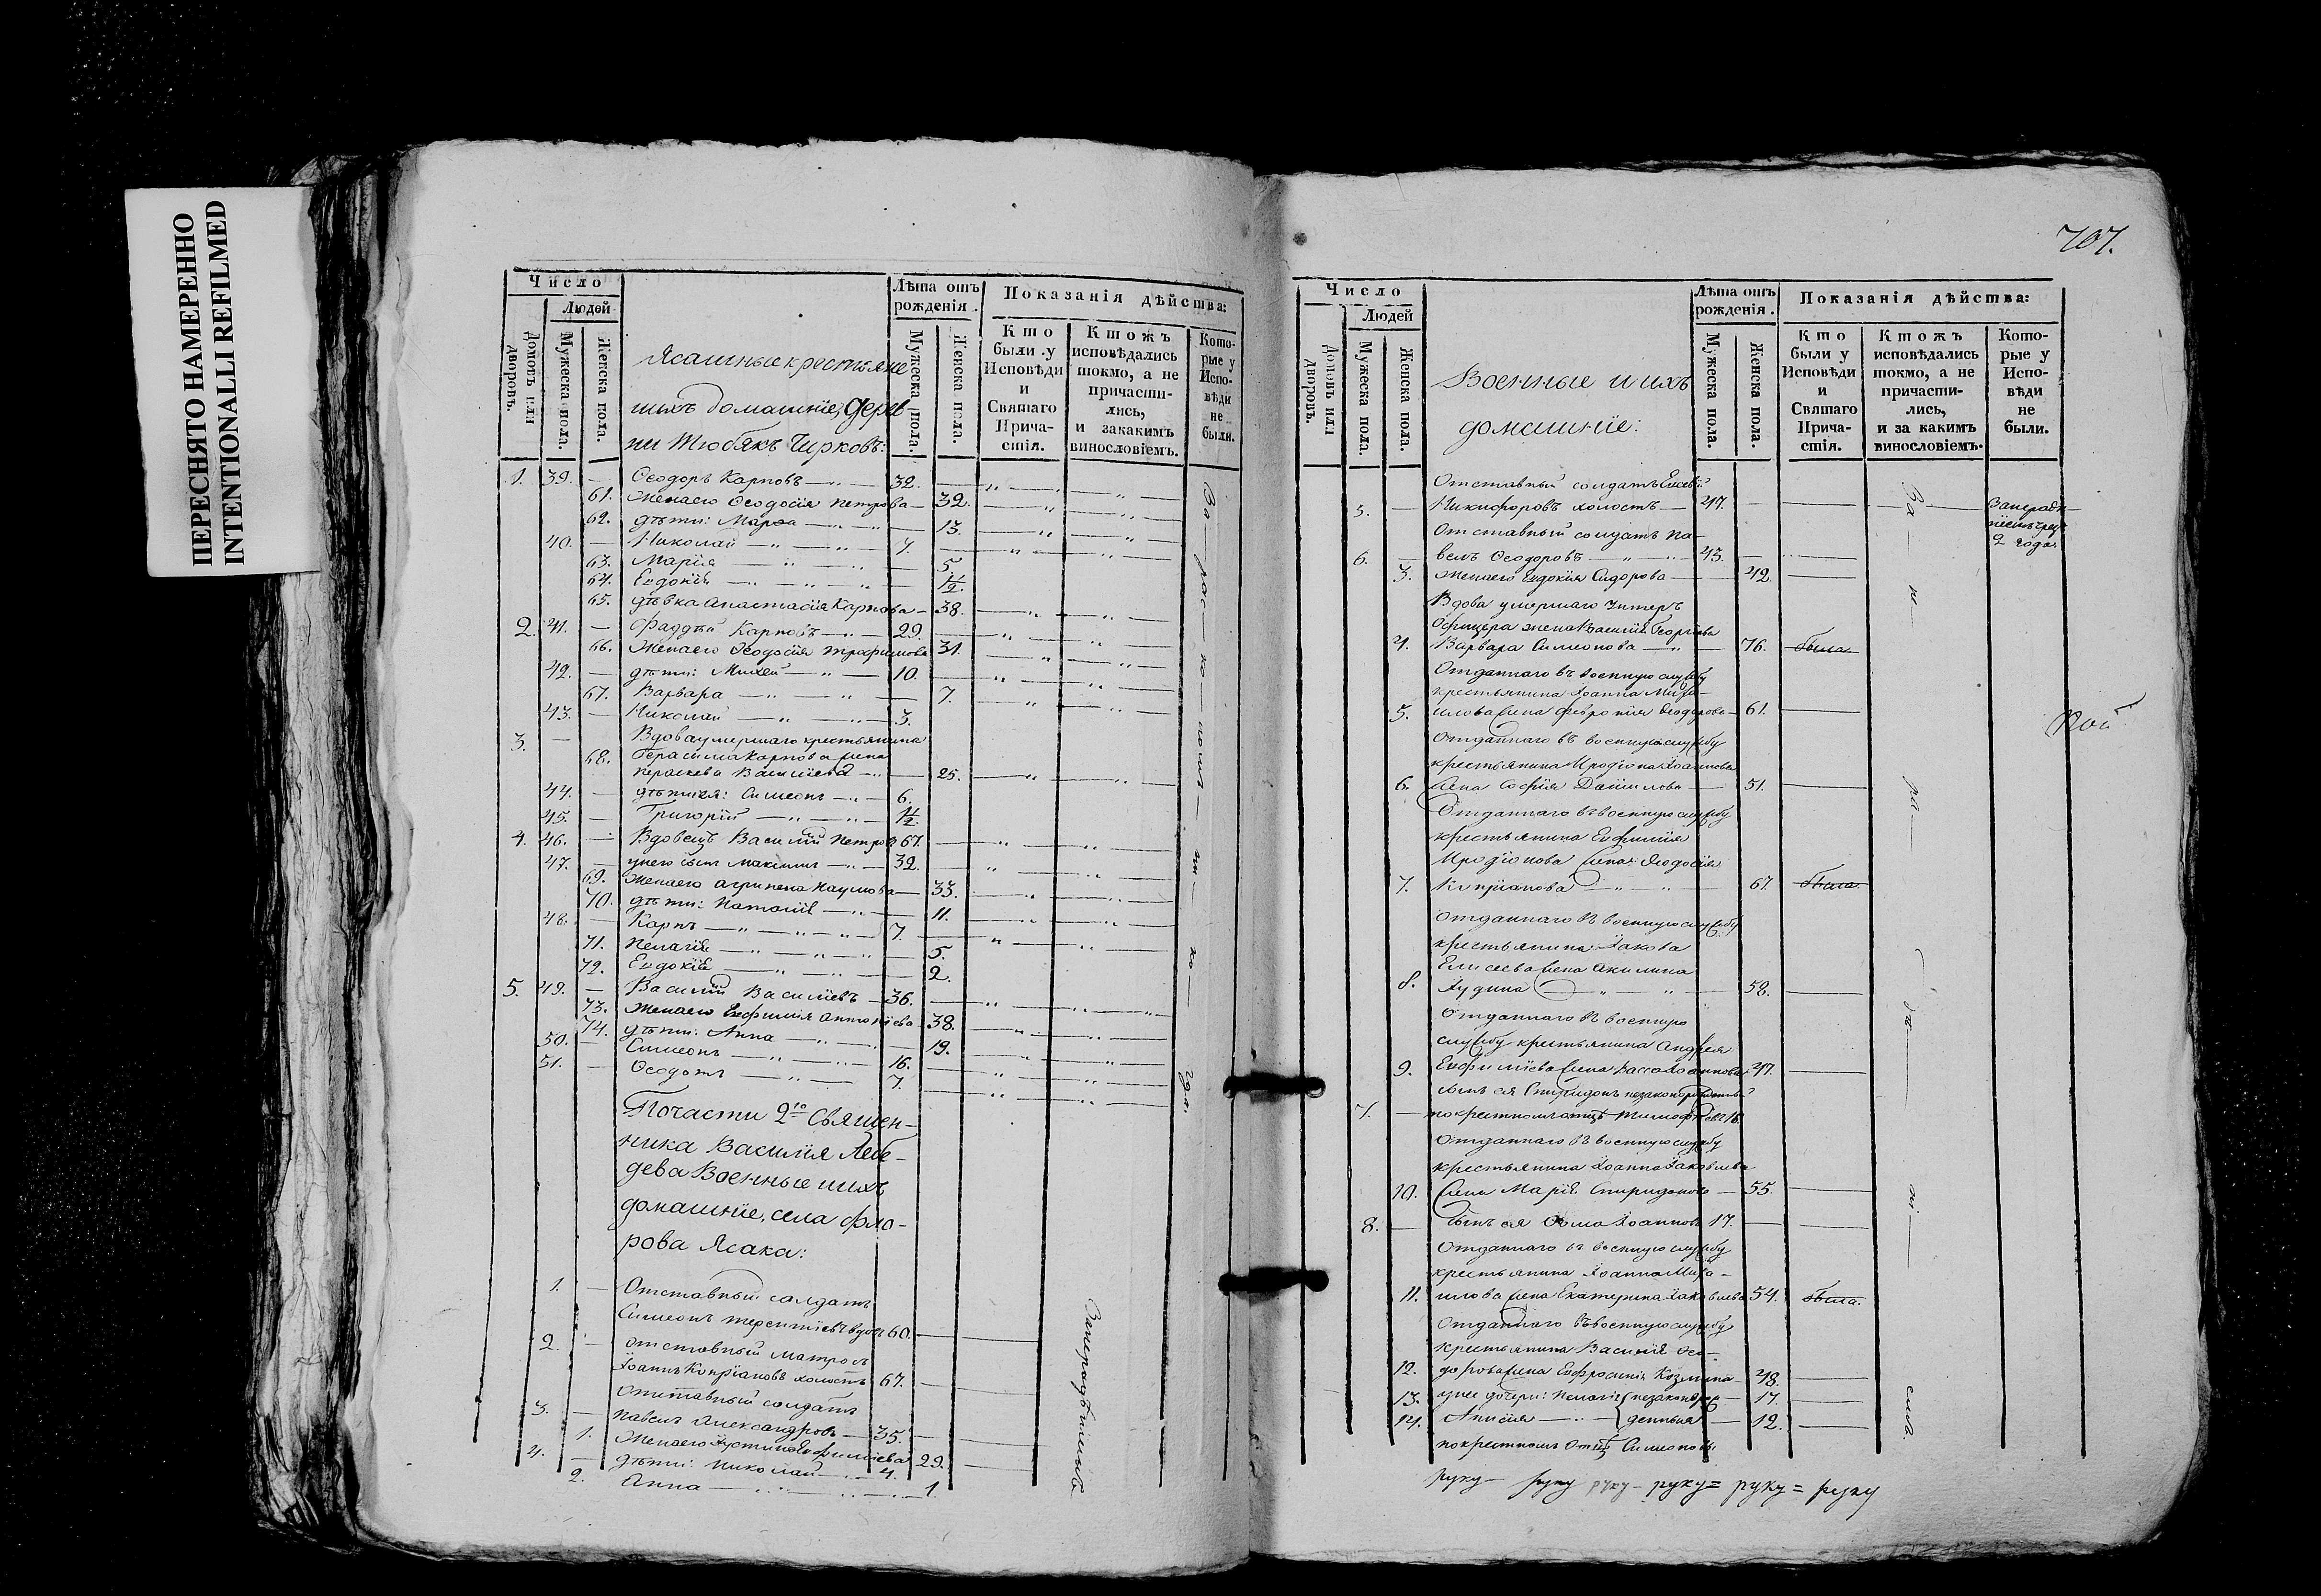 ПЕРЕСНЯТО НАМЕРЕННО
INTENTIONALLI REFILMED
Число
Людей
Домовъ или дворовъ.
Мужеска пола.
Женска пола.
Ясашные крестьяне
ихъ домашніе, дерев-
ни Тюбякъ Чирковъ:
Лѣта отъ рожденія.
Мужеска пола.
Женска пола.
Показанія дѣйства:
Кто были у Исповѣди и Святаго Прича-стія.
Ктожъ исповѣдались токмо, а не причасти-лись, и закакимъ винословіемъ.
Кото-рые у Испо-вѣди не были.
1. 39. — Ѳеодоръ Карповъ — 32.
61. Жена его Ѳеодосія Петрова — 32.
62. дѣти: Марѳа — 13.
40. — Николай — 7.
63. Марія — 5.
64. Евдокія — 1/2.
65. дѣвка Анастасія Карпова — 38.
2. 41. — Фаддѣй Карповъ — 29.
66. Жена его Ѳеодосія Трофимова 31.
42. — дѣти: Михей — 10.
67. Варвара — 7.
43. — Николай — 3.
3. — Вдова умершаго крестьянина
68. Герасима Карпова жена
Параскева Василіева — 25.
44. — дѣти ея: Симеонъ — 6.
45. — Григорій — 1/2.
4. 46. — Вдовецъ Василій Петровъ 67.
47. — у него сынъ Максимъ — 32.
69. Жена его Агрипена Наумова — 33.
70. дѣти: Наталія — 11.
48. — Карпъ — 7.
71. Пелагія — 5.
72. Евдокія — 2.
5. 49. — Василій Василіевъ — 36.
73. Жена его Евфимія Антоніева 38.
74. дѣти: Анна — 19.
50. — Симеонъ — 16.
51. — Ѳеодотъ — 7.
По части 2го Священ-
ника Василія Лебе-
дева Военные ихъ
домашніе, села Фло-
рова Ясака:
1. — Отставный солдатъ
Симеонъ Терентіевъ вдовъ 60.
2. — Отставный матросъ
Іоаннъ Кипріановъ холостъ 67.
3. — Отставный солдатъ
Павелъ Александровъ — 35.
1. Жена его Іустина Евфиміева 29.
4. — дѣти: Николай — 4.
2. Анна — 1.
707.
Число
Людей
Домовъ или дворовъ.
Мужеска пола.
Женска пола.
Военные и ихъ
домашніе:
Лѣта отъ рожденія.
Мужеска пола.
Женска пола.
Показанія дѣйства:
Кто были у Исповѣди и Святаго Прича-стія.
Ктожъ исповѣдались токмо, а не причасти-лись, и за какимъ винословіемъ.
Кото-рые у Испо-вѣди не были.
Отставный солдатъ
5. — Никифоровъ холостъ — 47.
2 года
Отставный солдатъ Па-
6. — велъ Ѳеодоровъ — 43.
3. Жена его Евдокія Сидорова — 42.
Вдова умершаго Унтеръ
Офицера жена Василія Георгіева
4. Варвара Симеонова — 76. была
Отданнаго въ военную службу
крестьянина Іоанна Миха-
5. илова жена Февронія Ѳеодорова — 61.
Отданнаго въ военную службу
крестьянина Иродіона Іоаннова
6. жена Софія Данилова — 51.
Отданнаго въ военную службу
крестьянина Евфимія
Иродіонова жена Ѳеодосія
7. Кипріанова — 67. была.
Отданнаго въ военную службу
крестьянина Іакова
Елисеева жена Акилина
8. Іудина — 58.
Отданнаго въ военную
службу крестьянина Андрея
9. Евфиміева жена Васса Іоаннова 47.
сынъ ея Спиридонъ незаконорожденный
7. — по крестномъ отцѣ Тимофеевъ 16.
Отданнаго въ военную службу
крестьянина Іоанна Іаковлева
10. жена Марія Спиридонова — 55.
8. — сынъ ея Ѳома Іоанновъ 17.
Отданнаго въ военную службу
крестьянина Іоанна Миха-
11. илова жена Екатерина Іаковлева 54. была.
Отданнаго въ военную службу
крестьянина Василія Ѳео-
12. дорова жена Евфросинія Козмина — 48.
13. у нее дочери: Пелагія незаконорож- — 17.
14. Анисія — денныя — 12.
по крестномъ Отцѣ Симеоновы.
руку — руку руку — руку = руку = руку